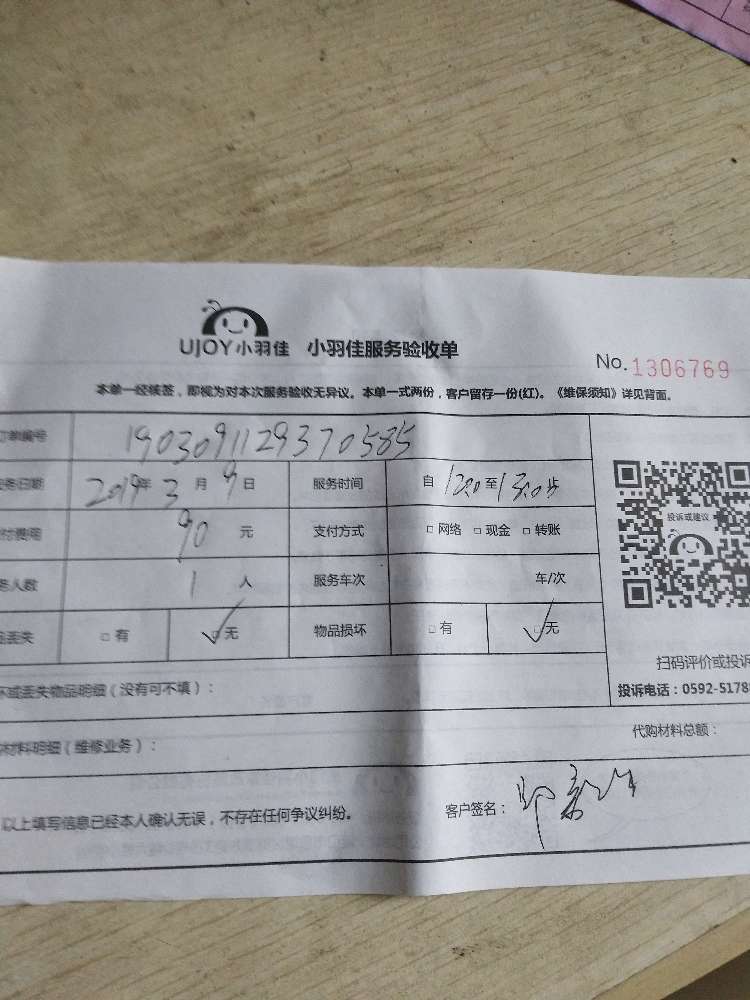 UJOY小羽佳 小羽佳服务验收单
No. 1306769
本单一经核签，即视为对本次服务验收无异议。本单一式两份，客户留存一份(红)。《维保须知》详见背面。
订单编号 190309112937 0585
务日期 2019年 3 月 9 日 服务时间 自 1200 至 1300 止
付费用 90 元 支付方式 □ 网络 □ 现金 □ 转账
务人数 1 人 服务车次 车/次
品丢失 □ 有 □ 无 物品损坏 □ 有 □ 无
投诉或建议
扫码评价或投诉
投诉电话：0592-5178
坏或丢失物品明细（没有可不填）：
材料明细（维修业务）： 代购材料总额：
以上填写信息已经本人确认无误，不存在任何争议纠纷。 客户签名：